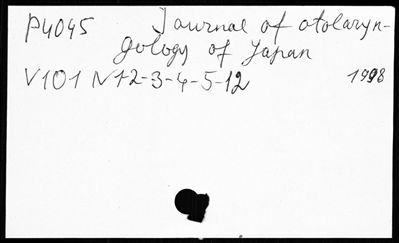 P4045 Journal of otolaryn-
gology of Japan
V101 N12-3-4-5-12 1998